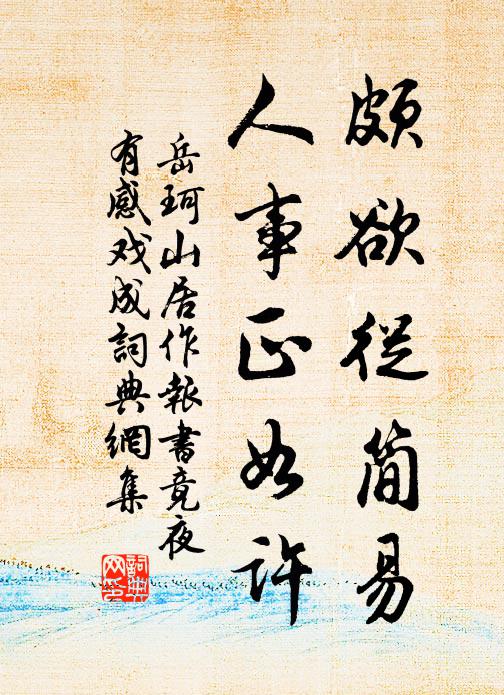 颇欲從简易
人事正如许
岳珂山居作報書竟夜
有感戏成詞典網集
詞典网集